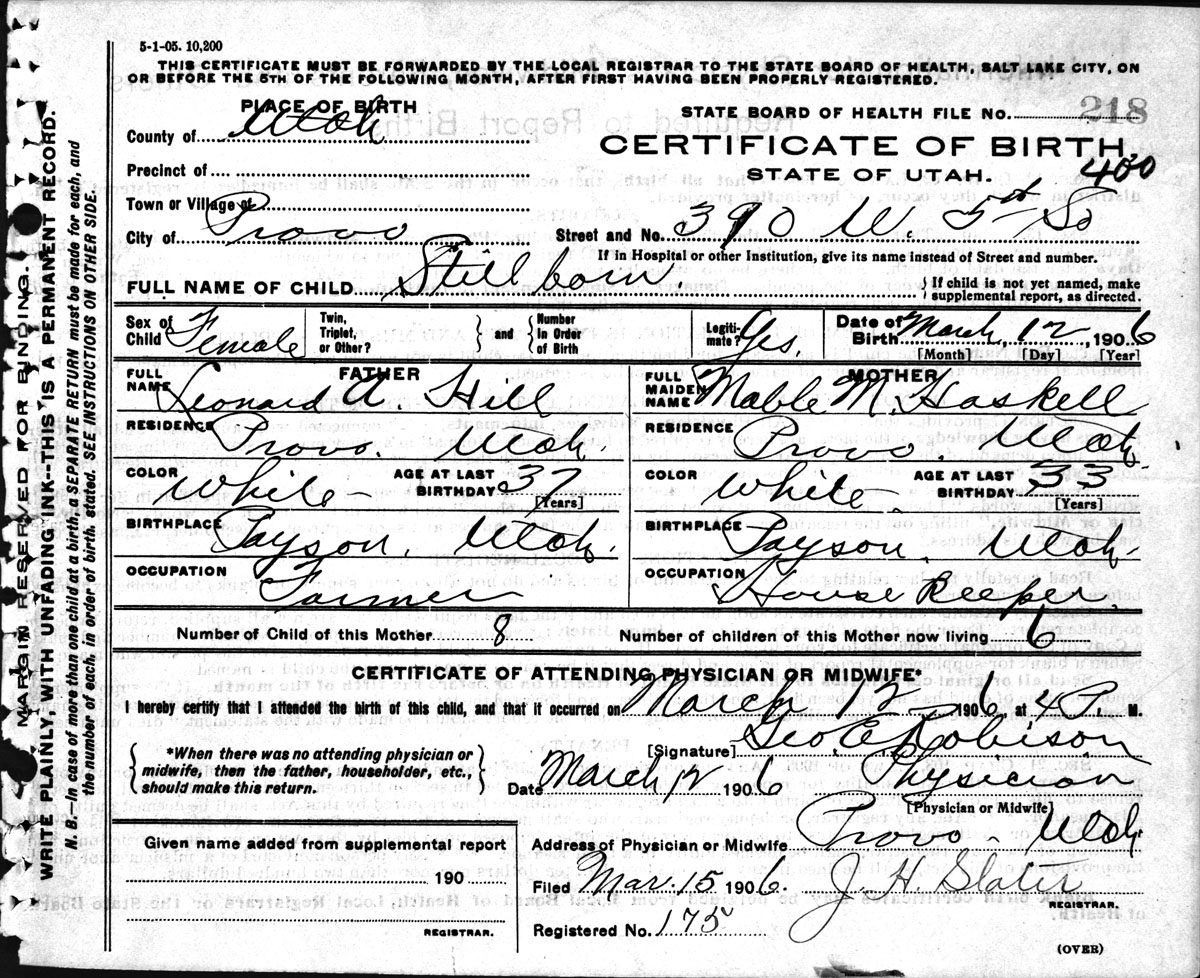 5-1-05. 10,200
THIS CERTIFICATE MUST BE FORWARDED BY THE LOCAL REGISTRAR TO THE STATE BOARD OF HEALTH, SALT LAKE CITY, ON
OR BEFORE THE 5TH OF THE FOLLOWING MONTH, AFTER FIRST HAVING BEEN PROPERLY REGISTERED.
PLACE OF BIRTH
STATE BOARD OF HEALTH FILE NO. 218
County of Utah
CERTIFICATE OF BIRTH
Precinct of
STATE OF UTAH. 400
Town or Village of
City of Provo Street and No. 390 W. 5th So
If in Hospital or other Institution, give its name instead of Street and number.
FULL NAME OF CHILD Stillborn. { If child is not yet named, make supplemental report, as directed.
Sex of Child Female Twin, Triplet, or Other? } and { Number in Order of Birth Legiti-mate? Yes. Date of Birth March, 12, 1906
[Month] [Day] [Year]
FATHER MOTHER
FULL NAME Leonard A. Hill FULL MAIDEN NAME Mable M. Haskell
RESIDENCE Provo. Utah. RESIDENCE Provo. Utah.
COLOR White AGE AT LAST BIRTHDAY 37 [Years] COLOR White AGE AT LAST BIRTHDAY 33 [Years]
BIRTHPLACE Payson, Utah. BIRTHPLACE Payson, Utah.
OCCUPATION Farmer OCCUPATION House Keeper.
Number of Child of this Mother 8 Number of children of this Mother now living 6
CERTIFICATE OF ATTENDING PHYSICIAN OR MIDWIFE*
I hereby certify that I attended the birth of this child, and that it occurred on March 12, 1906 at 4 P. M.
{ *When there was no attending physician or midwife, then the father, householder, etc., should make this return. }
[Signature] Geo E Robison
Date March 12 1906 Physician
[Physician or Midwife]
Given name added from supplemental report
Address of Physician or Midwife Provo - Utah
190
Filed Mar. 15 1906. J. H. Slater
REGISTRAR.
REGISTRAR.
Registered No. 175
(OVER)
MARGIN RESERVED FOR BINDING.
WRITE PLAINLY, WITH UNFADING INK--THIS IS A PERMANENT RECORD.
N. B.—In case of more than one child at a birth, a SEPARATE RETURN must be made for each, and
the number of each, in order of birth, stated. SEE INSTRUCTIONS ON OTHER SIDE.